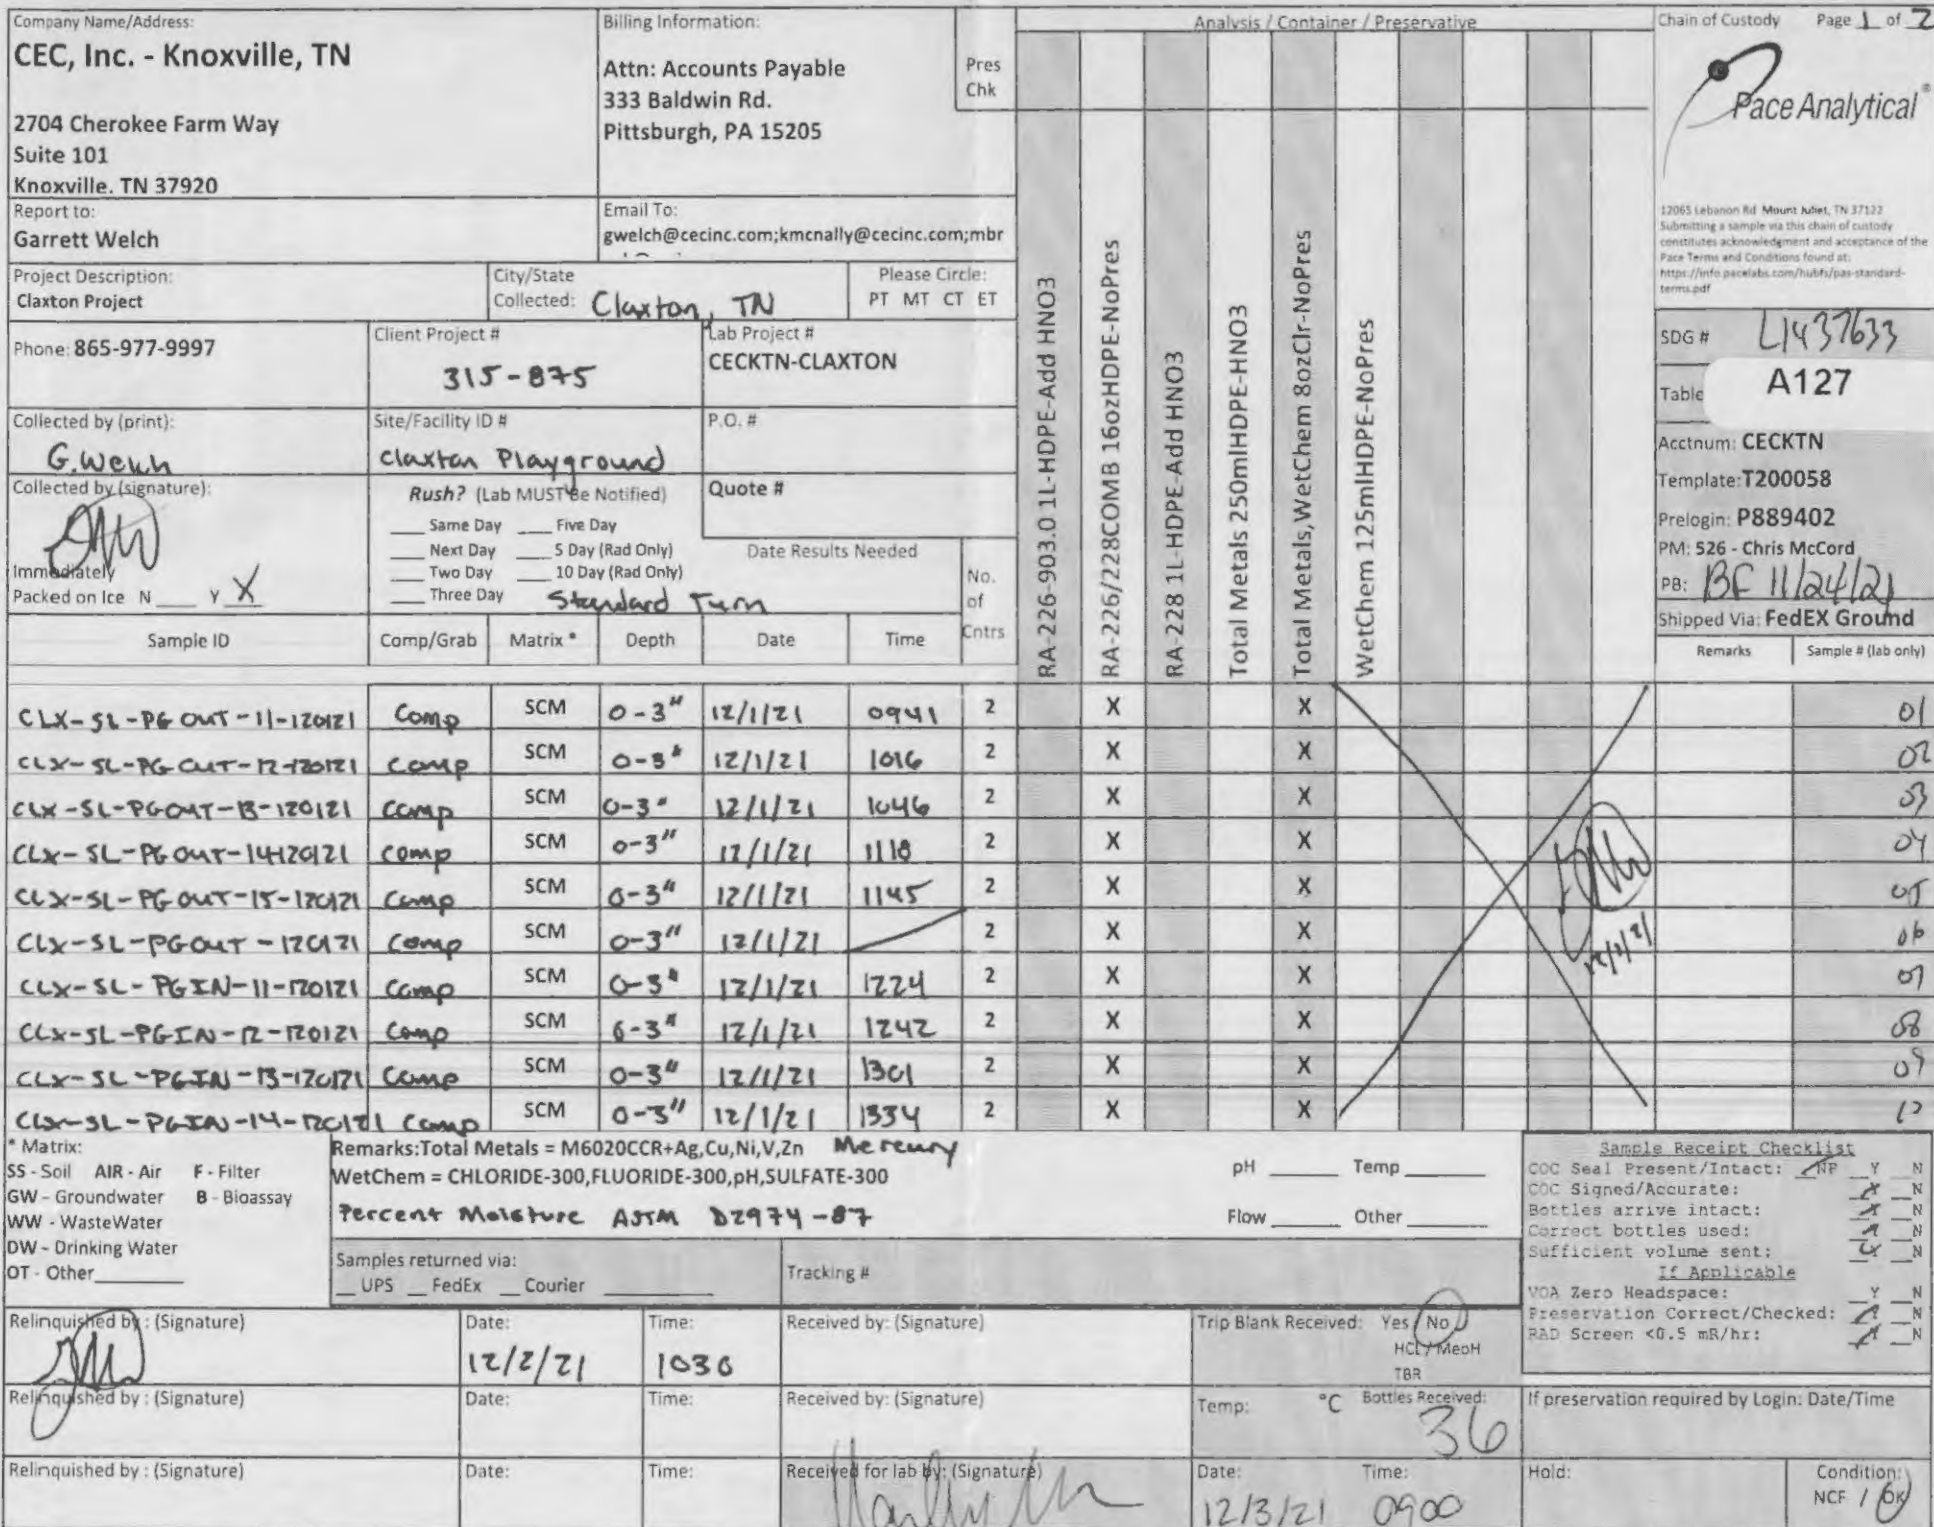 Company Name/Address:
CEC, Inc. - Knoxville, TN
2704 Cherokee Farm Way
Suite 101
Knoxville, TN 37920
Billing Information:
Attn: Accounts Payable
333 Baldwin Rd.
Pittsburgh, PA 15205
Pres
Chk
Analysis / Container / Preservative
Chain of Custody Page 1 of 2
Pace Analytical®
12065 Lebanon Rd Mount Juliet, TN 37122
Submitting a sample via this chain of custody
constitutes acknowledgment and acceptance of the
Pace Terms and Conditions found at:
https://info.pacelabs.com/hubfs/pas-standard-
terms.pdf
Report to:
Garrett Welch
Email To:
gwelch@cecinc.com;kmcnally@cecinc.com;mbr
Project Description:
Claxton Project
City/State
Collected: Claxton, TN
Please Circle:
PT MT CT ET
Phone: 865-977-9997
Client Project #
315-875
Lab Project #
CECKTN-CLAXTON
Collected by (print):
G. Welch
Site/Facility ID #
Claxton Playground
P.O. #
Collected by (signature):
Immediately
Packed on Ice N ___ Y X
Rush? (Lab MUST Be Notified)
___ Same Day ___ Five Day
___ Next Day ___ 5 Day (Rad Only)
___ Two Day ___ 10 Day (Rad Only)
___ Three Day Standard Turn
Quote #
Date Results Needed
No.
of
Cntrs
RA-226-903.0 1L-HDPE-Add HNO3
RA-226/228COMB 16ozHDPE-NoPres
RA-228 1L-HDPE-Add HNO3
Total Metals 250mlHDPE-HNO3
Total Metals,WetChem 8ozClr-NoPres
WetChem 125mlHDPE-NoPres
SDG # L1437633
Table A127
Acctnum: CECKTN
Template: T200058
Prelogin: P889402
PM: 526 - Chris McCord
PB: BF 11/24/21
Shipped Via: FedEX Ground
Sample ID Comp/Grab Matrix * Depth Date Time Remarks Sample # (lab only)
CLX-SL-PGOUT-11-120121 Comp SCM 0-3" 12/1/21 0941 2 X X 01
CLX-SL-PGOUT-12-120121 Comp SCM 0-3" 12/1/21 1016 2 X X 02
CLX-SL-PGOUT-13-120121 Comp SCM 0-3" 12/1/21 1046 2 X X 03
CLX-SL-PGOUT-14-120121 Comp SCM 0-3" 12/1/21 1118 2 X X 04
CLX-SL-PGOUT-15-120121 Comp SCM 0-3" 12/1/21 1145 2 X X 05
CLX-SL-PGOUT-120121 Comp SCM 0-3" 12/1/21 2 X X 06
CLX-SL-PGIN-11-120121 Comp SCM 0-3" 12/1/21 1224 2 X X 07
CLX-SL-PGIN-12-120121 Comp SCM 0-3" 12/1/21 1242 2 X X 08
CLX-SL-PGIN-13-120121 Comp SCM 0-3" 12/1/21 1301 2 X X 09
CLX-SL-PGIN-14-120121 Comp SCM 0-3" 12/1/21 1334 2 X X
* Matrix:
SS - Soil AIR - Air F - Filter
GW - Groundwater B - Bioassay
WW - WasteWater
DW - Drinking Water
OT - Other
Remarks:Total Metals = M6020CCR+Ag,Cu,Ni,V,Zn Mercury
WetChem = CHLORIDE-300,FLUORIDE-300,pH,SULFATE-300
Percent Moisture ASTM D2974-87
pH ___ Temp ___
Flow ___ Other ___
Samples returned via:
__ UPS __ FedEx __ Courier
Tracking #
Sample Receipt Checklist
COC Seal Present/Intact: NP _Y _N
COC Signed/Accurate: _N
Bottles arrive intact: _N
Correct bottles used: _N
Sufficient volume sent: _N
If Applicable
VOA Zero Headspace: _Y _N
Preservation Correct/Checked: _N
RAD Screen <0.5 mR/hr: _N
Relinquished by : (Signature) Date: 12/2/21 Time: 1030 Received by: (Signature)
Trip Blank Received: Yes / No
HCL / MeoH
TBR
Relinquished by : (Signature) Date: Time: Received by: (Signature)
Temp: °C Bottles Received: 36
If preservation required by Login: Date/Time
Relinquished by : (Signature) Date: Time: Received for lab by: (Signature)
Date: 12/3/21 Time: 0900
Hold:
Condition:
NCF / OK